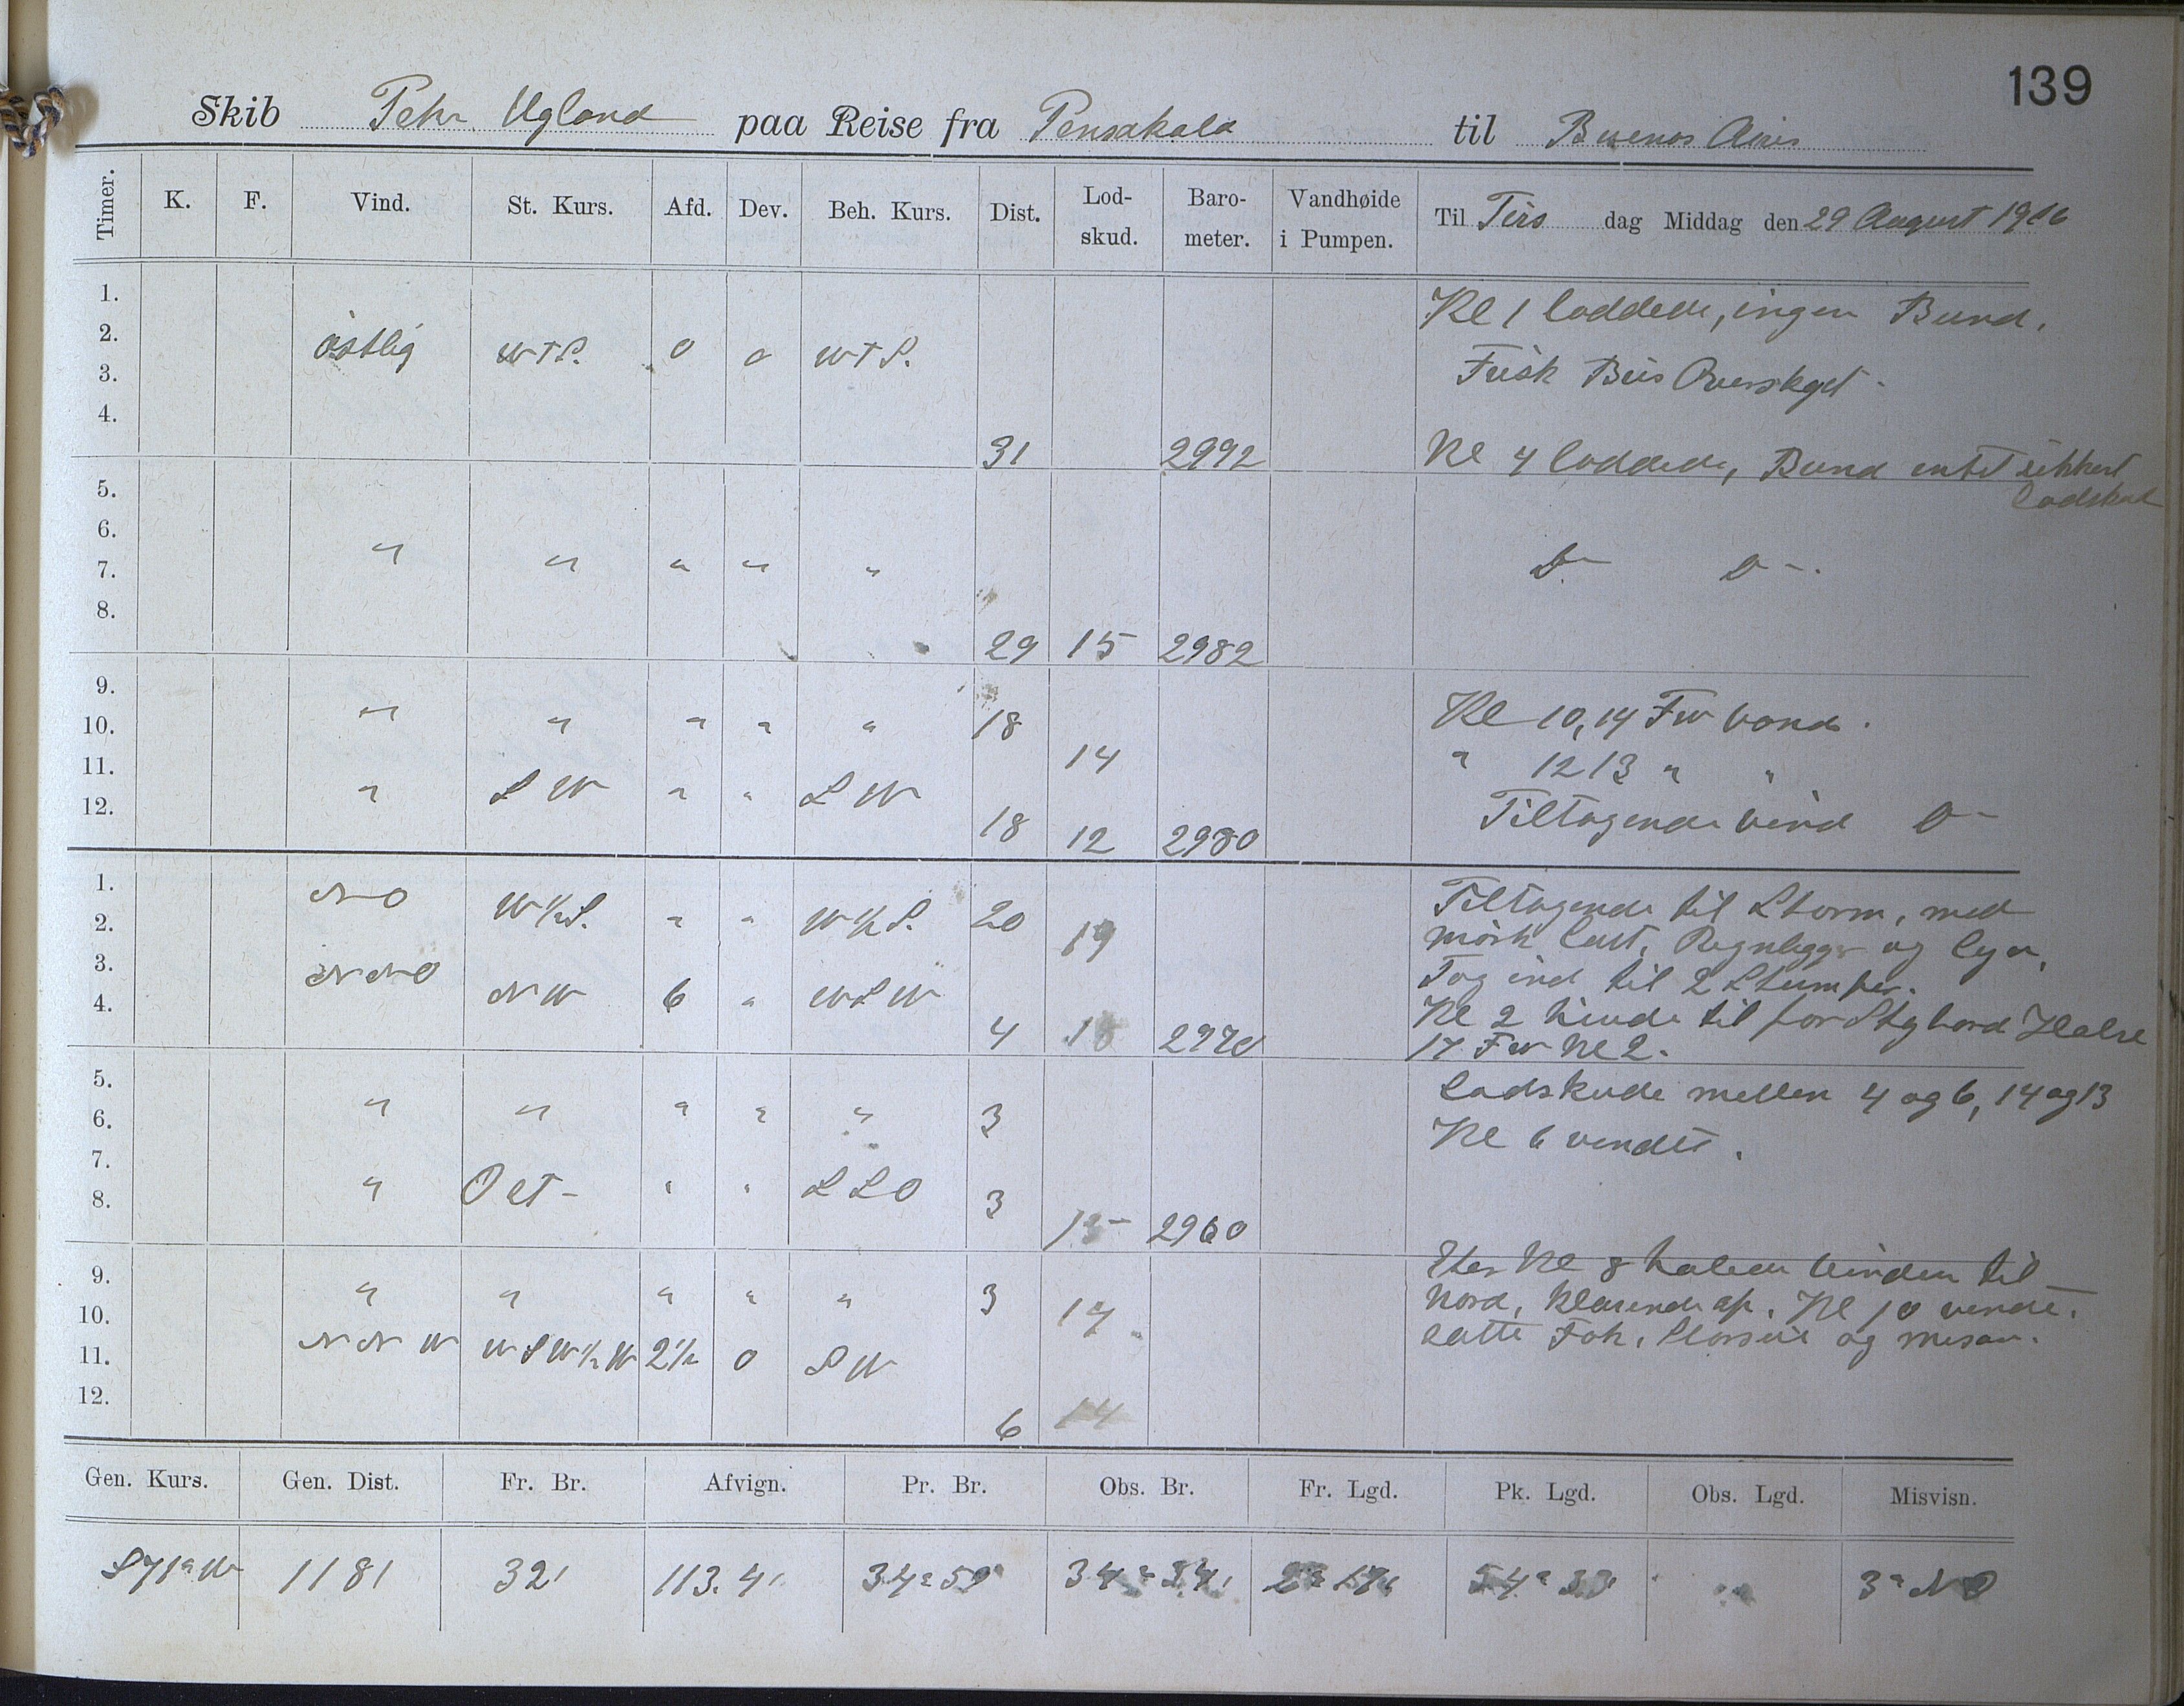 139
Skib Peter Ugland paa Reise fra Pensakala til Buenos Aires
Timer. K. F. Vind. St. Kurs. Afd. Dev. Beh. Kurs. Dist. Lod-skud. Baro-meter. Vandhøide i Pumpen. Til Tirs dag Middag den 29 August 1916
1. Kl 1 loddede, ingen Bund.
2. östlig WTS. 0 0 WTS.
3. Frisk Bris Overskyet.
4. 31 2992 Kl 4 loddede, Bund intet sikkert
5. Lodskud
6. " " " " "
7. D- D-.
8. 29 15 2982
9.
10. " " " " " 18 Kl 10, 14 Fv vand.
11. 14 " 12 13 " "
12. " S W " " S W 18 12 2980 Tiltagende vind D-
1. NO W½S. " " W½S. 20 Tiltagende til Storm, med
2. 19 mörk luft, Regnbyger og lyn,
3. NNO NW 6 " WSW Tog ind til 2 Stumper.
4. 4 18 2970 Kl 2 vinde til for Stybord Halse
17 Fv Kl 2.
5. Lodskude mellem 4 og 6, 14 og 13
6. " " " " " 3 Kl 6 vendte.
7.
8. " Ost- " " SSO 3 15 2960
9. " " " " " 3 Efter Kl 8 halede vinden til
10. 17 Nord, klarende op. Kl 10 vendte.
11. NNW WSW½W 2½ 0 SW satte Fok, Storseil og mesan.
12. 6 14
Gen. Kurs. Gen. Dist. Fr. Br. Afvign. Pr. Br. Obs. Br. Fr. Lgd. Pk. Lgd. Obs. Lgd. Misvisn.
S71°W 118' 32' 113.4' 34°59' 34° 54' 2° 17' 54° 33' 3° NO